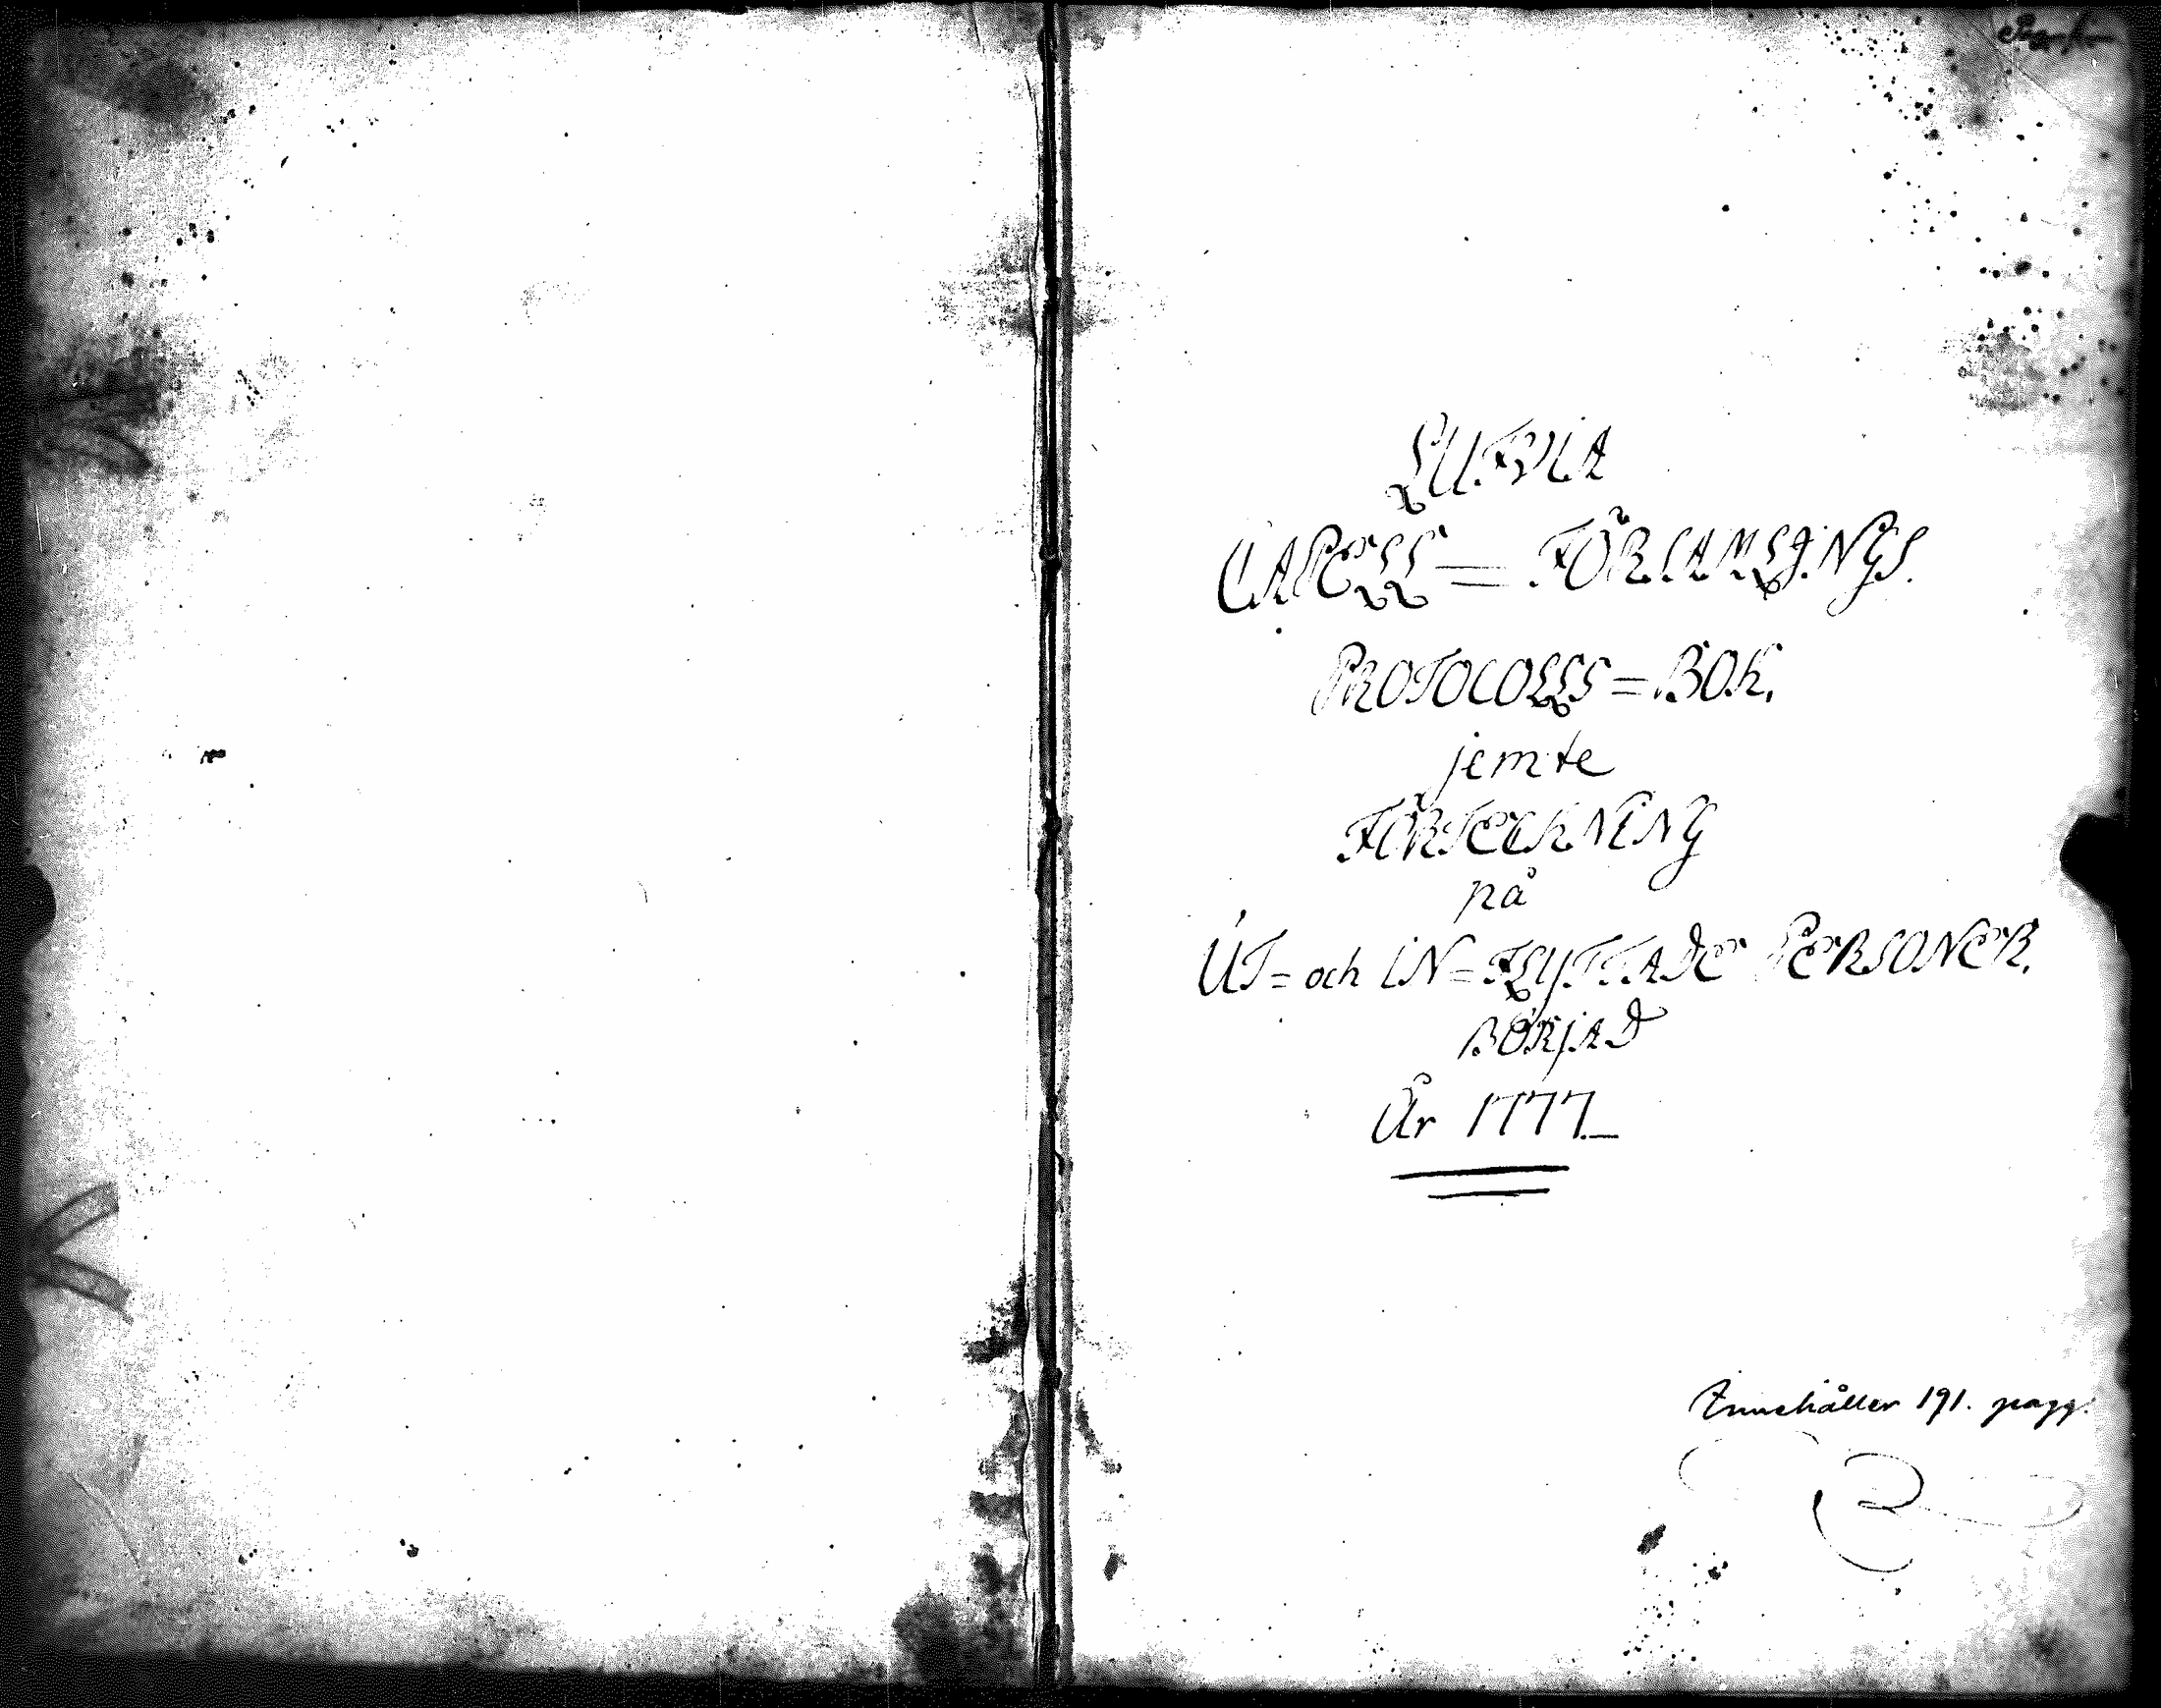 LUFVIA
CAPELL = FÖRSAMLINGS.
PROTOCOLLS = BOK.
jemte
FÖRTECKNING
på
UT = och IN = FLYTTADE PERSONER.
BÖRJAD
År 1777.
Innehåller 191. pagg.